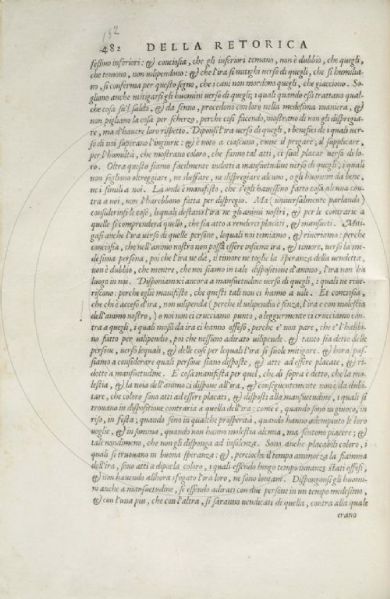 152
482 DELLA RETORICA
essino inferiori: & conciosia, che gl'inferiori temano, non è dubbio, che quegli,
che temono, non vilipendino: & che l'ira si mitighi verso di quegli, che si humilia
no, si conferma per questo segno, che i cani non mordino quegli, che giacciono. So
gliamo anche mitigarsi gli huomini verso di quegli; i quali quando essi trattano qual
che cosa sul saldo, & da senno, procedono con loro nella medesima maniera, &
non pigliano la cosa per scherzo, perche così facendo, mostrano di non gli dispregia
re, ma d'havere loro rispetto. Diponsi l'ira verso di quegli, i benefici de i quali ver
so di noi superano l'ingiurie: & è noto a ciascuno, come il pregare, il supplicare,
per l'humiltà, che mostrano coloro, che fanno tal atti, ci suol placar verso di lo
ro. Oltra questo siamo facilmente indotti a mansuetudine verso di quegli, i quali
non sogliono oltreggiare, ne sbeffare, ne dispregiare alcuno, o gli huomini da bene,
ne i simili a noi. La onde è manifesto, che s'egli havessino fatto cosa alcuna con
tra a noi, non l'harebbono fatta per dispregio. Ma (universalmente parlando)
considerinsi le cose, lequali destano l'ira ne gli animi nostri, & per le contrarie a
quelle si comprenderà quello, che sia atto a renderci placati, & mansueti. Miti
gasi anche l'ira verso di quelle persone, lequali noi temiamo, & riveriamo: perche
conciosia, che nell'animo nostro non possa essere insieme ira, & timore, verso la me
desima persona, poi che l'ira ne dà, il timore ne toglie la speranza della vendetta,
non è dubbio, che mentre, che noi siamo in tale dispositione d'animo, l'ira non hà
luogo in noi. Disponianci ancora a mansuetudine verso di quegli, i quali ne rive
riscano: perche egli è manifesto, che questi tali non ci hanno a vile. Et conciosia,
che chi è acceso d'ira, non vilipenda (perche il vilipendio è senza l'ira & con molestia
dell'animo nostro,) o noi non ci crucciamo punto, o leggiermente ci crucciamo con
tra a quegli, i quali mossi da ira ci hanno offeso, perche e' non pare, che e' l'habbi
no fatto per vilipendio, poi che nessuno adirato vilipende. & tanto sia detto delle
persone, verso lequali, & delle cose per lequali l'ira si suole mitigare. & hora pas
siamo a considerare quali persone siano disposte, & atte ad essere placate, & ri
dotte a mansuetudine. E' cosa manifesta per quel, che di sopra è detto, che la mo
lestia, & la noia dell'animo ci dispone all'ira, & conseguentemente non è da dubi
tare, che coloro sono atti ad esser placati, & disposti alla mansuetudine, i quali si
trovano in dispositione contraria a quella dell'ira: come è, quando sono in giuoco, in
riso, in festa; quando sono in qualche prosperità, quando hanno adempiuto le loro
voglie, & in somma, quando non hanno molestia alcuna, ma sentono piacere; &
tale godimento, che non gli disponga ad insolenza. Sono anche placabili coloro, i
quali si truovano in buona speranza: & percioche il tempo ammorza la fiamma
dell'ira, sono atti a diporla coloro, i quali essendo lungo tempo innanzi stati offesi,
& non havendo allhora sfogato l'ira loro, ne sono lontani. Dispongonsi gli huo
mini anche a mansuetudine, se essendo adirati con due persone in un tempo medesimo,
& con l'una più, che con l'altra, si saranno vendicati di quella, contra alla quale
erano